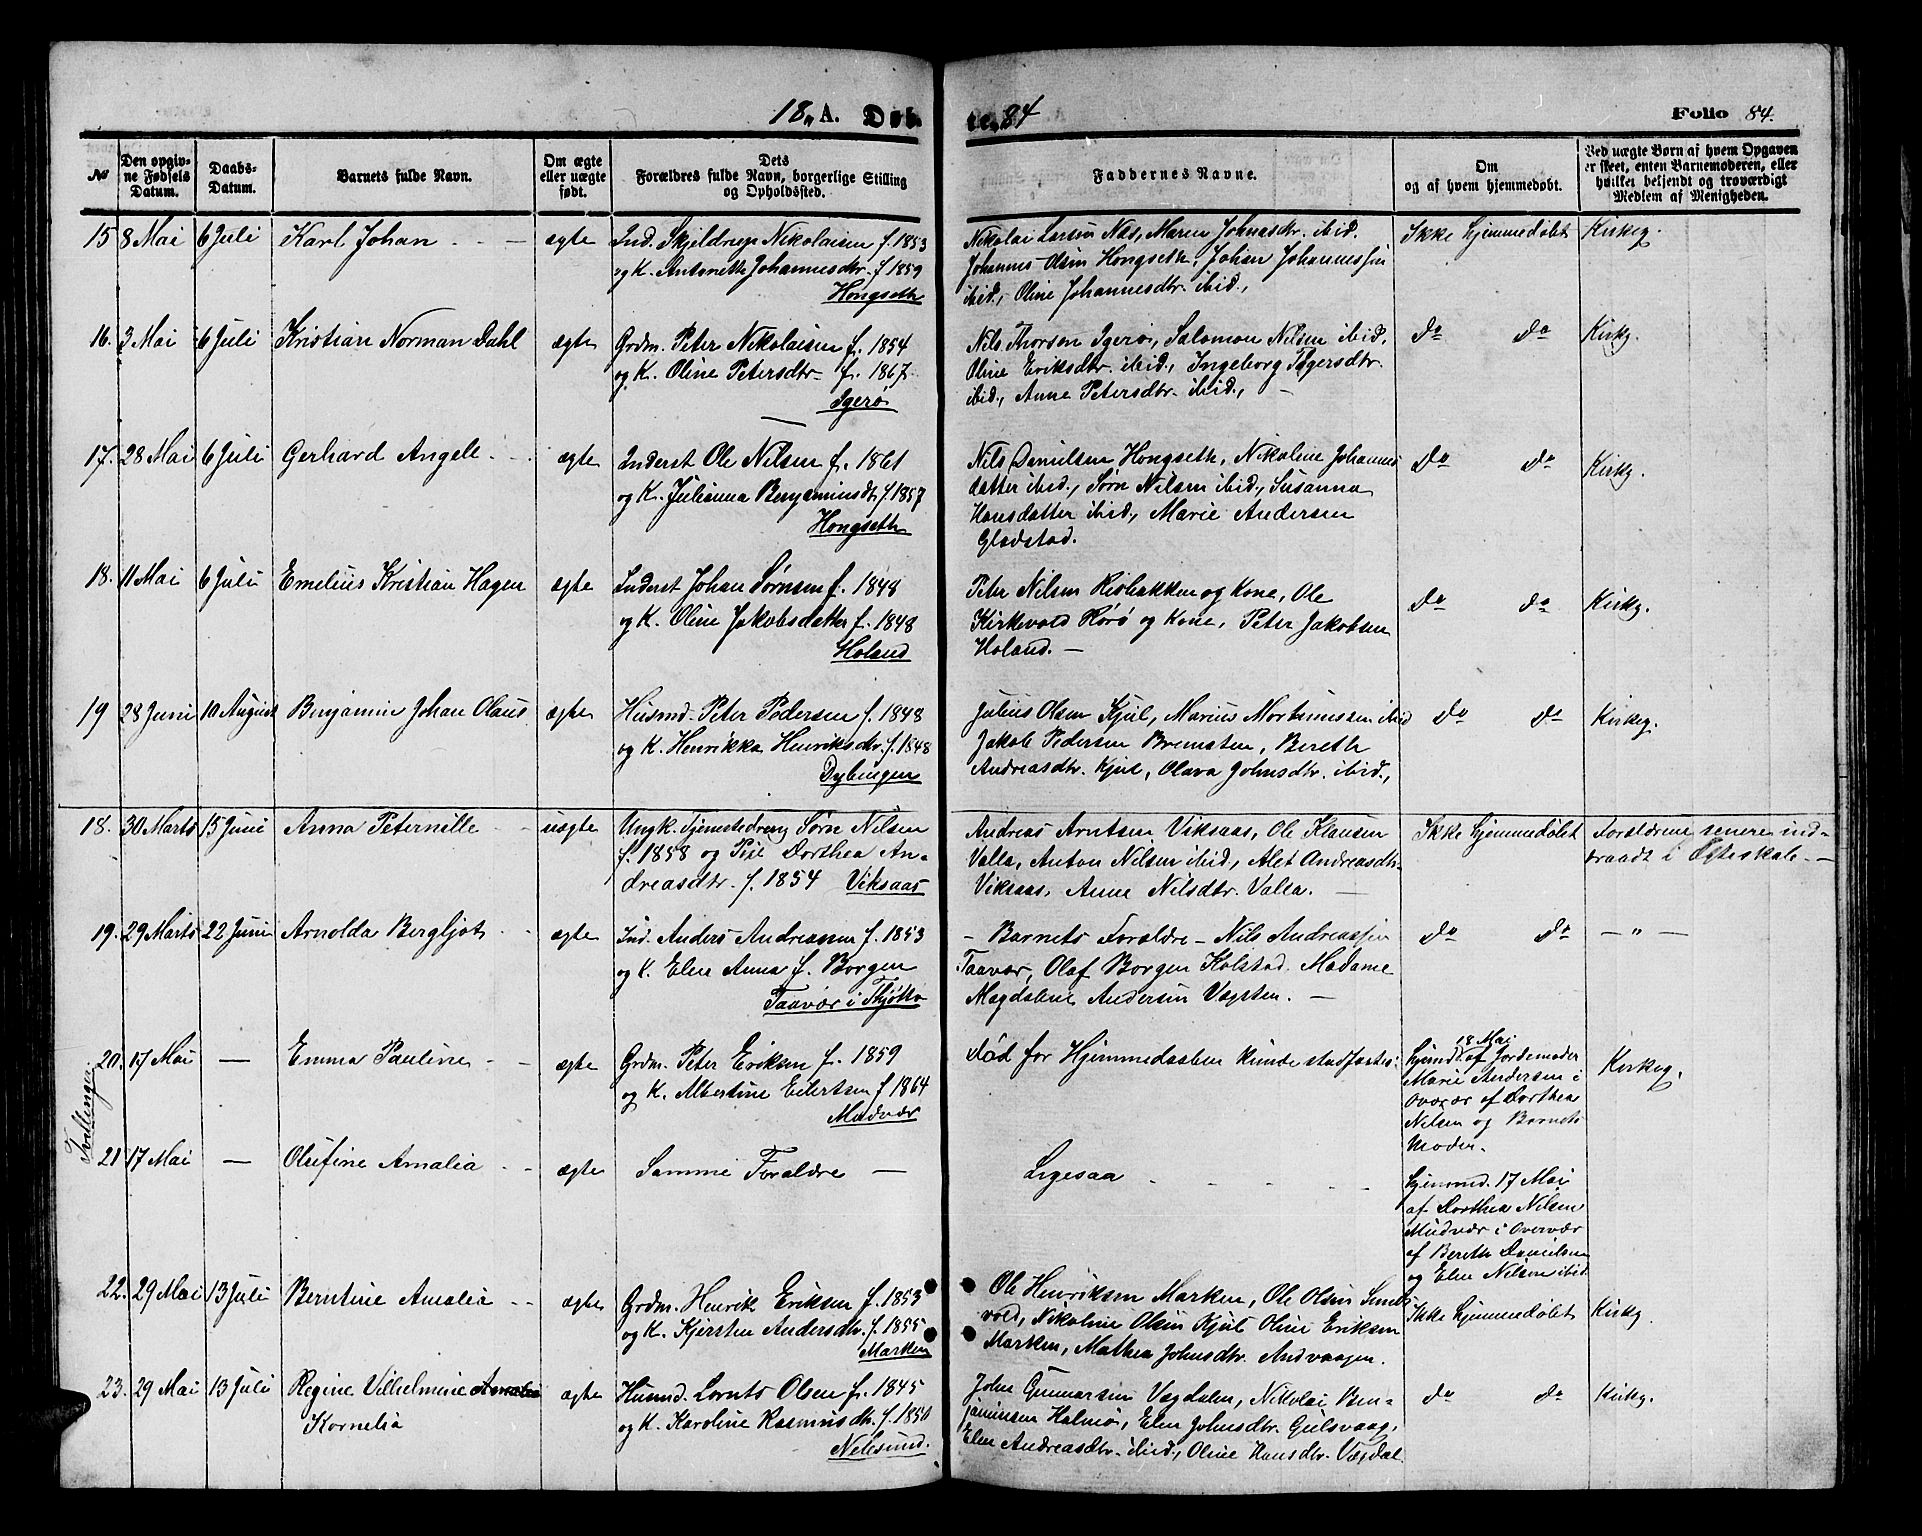 18 A. Døbte. 84
Folio 84.
No
Den opgivne Fødsels Datum.
Daabs-Datum.
Barnets fulde Navn.
Om ægte eller uægte født.
Dets Forældres fulde Navn, borgerlige Stilling og Opholdssted.
Faddernes Navne.
Om og af hvem hjemmedøbt.
Ved uægte Børn af hvem Opgaven er skeet, enten Barnemoderen, eller hvilket bekjendt og troværdigt Medlem af Menigheden.
15 8 Mai 6 Juli Karl Johan ægte
Ind. Skjeldrup Nikolaisen f. 1853
og K. Antonette Johannesdtr. f 1859
Hongseth
Nikolai Larsen Næs, Maren Johnasdtr. ibid.
Johannes Olsen Hongseth, Johan Johannessen
ibid., Oline Johannesdtr. ibid.,
Ikke hjemmedøbt Kirkeg.
16. 3 Mai 6 Juli Kristian Norman Dahl ægte
Grdm. Peter Nikolaisen f. 1854
og K. Oline Petersdtr. f. 1867.
Igerø
Nils Thorsen Igerø, Salomon Nilsen ibid.
Oline Eriksdtr. ibid., Ingeborg
ibid., Anne Petersdtr. ibid., —
do do Kirkg.
17. 28 Mai 6 Juli Gerhard Angell ægte
Inderst Ole Nilsen f. 1861
og K. Julianna Benjaminsdt. f. 1857
Hongseth
Nils Danielsen Hongseth, Nikoline Johannes
datter ibid., Sørn Nilsen ibid., Susanna
Hansdatter ibid., Marie Andersen
Gladstad.
do do Kirkg.
18. 11 Mai 6 Juli Emelius Kristian Hagen ægte
Inderst Johan Sørnsen f. 1848
og K. Oline Jakobsdatter f. 1848
Holand
Peter Nilsen Risbakken og Kone, Ole
Kirkvold Rørø og Kone, Peter Jakobsen
Holand. —
do do Kirkg.
19 28 Juni 10 August Benjamin Johan Olaus ægte
Husmd. Peter Pedersen f. 1848
og K. Henrikka Henriksdtr. f. 1848
Dybingen
Julius Olsen Kjul, Marius Mortinussen ibid
Jakob Pedersen Bremsten, Bereth
Andreasdtr. Kjul, Olava Johnsdtr. ibid.,
do do Kirkeg.
18. 30 Marts 15 Juni Anna Peternille uægte
Ungk. Tjenestedreng Sørn Nilsen
f. 1858 og Pige Dorthea An-
dreasdtr. f. 1854 Viksaas
Andreas Arntsen Viksaas, Ole Klausen
Valla, Anton Nilsen ibid., Alet Andreasdtr.
Viksaas, Anne Nilsdtr. Valla. —
Ikke hjemmedøbt Forældrene senere ind-
traadt i Ægteskab. —
19. 29 Marts 22 Juni Arnolda Bergljot ægte
Ind. Anders Andreasen f. 1853
og K. Elen Anna f. Borgen
Taavær i Thjøtta
- Barnets Forældre - Nils Andreassen
Taavær, Olaf Borgen Kolstad. Madame
Magdalene Andersen Vægsten. —
do do — " —
Tvillinger
20. 17 Mai — Emma Pauline ægte
Grdm. Peter Eriksen f. 1859
og K. Albertine Eilertsen f 1864
Mudvær
Død før Hjemmedaaben kunde stadfæstes.
18 Mai
hjemd. af Jordemoder
Marie Andersen i
Overvær af Dorthea
Nilsen og Barnets
Moder.
Kirkeg.
21 17 Mai — Olufine Amalia ægte
Samme Forældre —
Ligesaa
hjemmd. 17 Mai
af Dorthea Nilsen
Mudvær i Overvær
af Bereth Danielsen
og Elen Nilsen ibid
22. 29 Mai 13 Juli Berntine Amalia ægte
Grdm. Henrik Eriksen f. 1853
og K. Kjersten Andersdtr. f. 1855
Marken
Ole Henriksen Marken, Ole Olsen Sunds
vold, Nikoline Olsen Kjul Oline Eriksen
Marken, Mathea Johnsdtr. Andvaagen.
Ikke hjemmedøbt Kirkg.
23. 29 Mai 13 Juli Regine Vilhelmine Amalia
Kornelia ægte
Husmd. Lornts Olsen f. 1845
og K. Karoline Rasmusdtr. f. 1850
Nilssund.
John Gunnarsen Vægdalen, Nikolai Ben-
jaminsen Halmø, Elen Johnsdtr. Gulsvaag,
Elen Andreasdtr. ibid., Oline Hansdtr. Vægdal.
do do Kirkg.